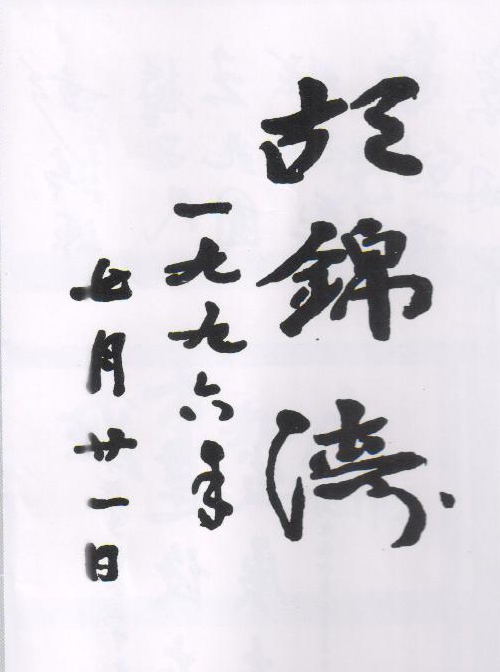 胡錦濤
一九九六年
七月廿一日